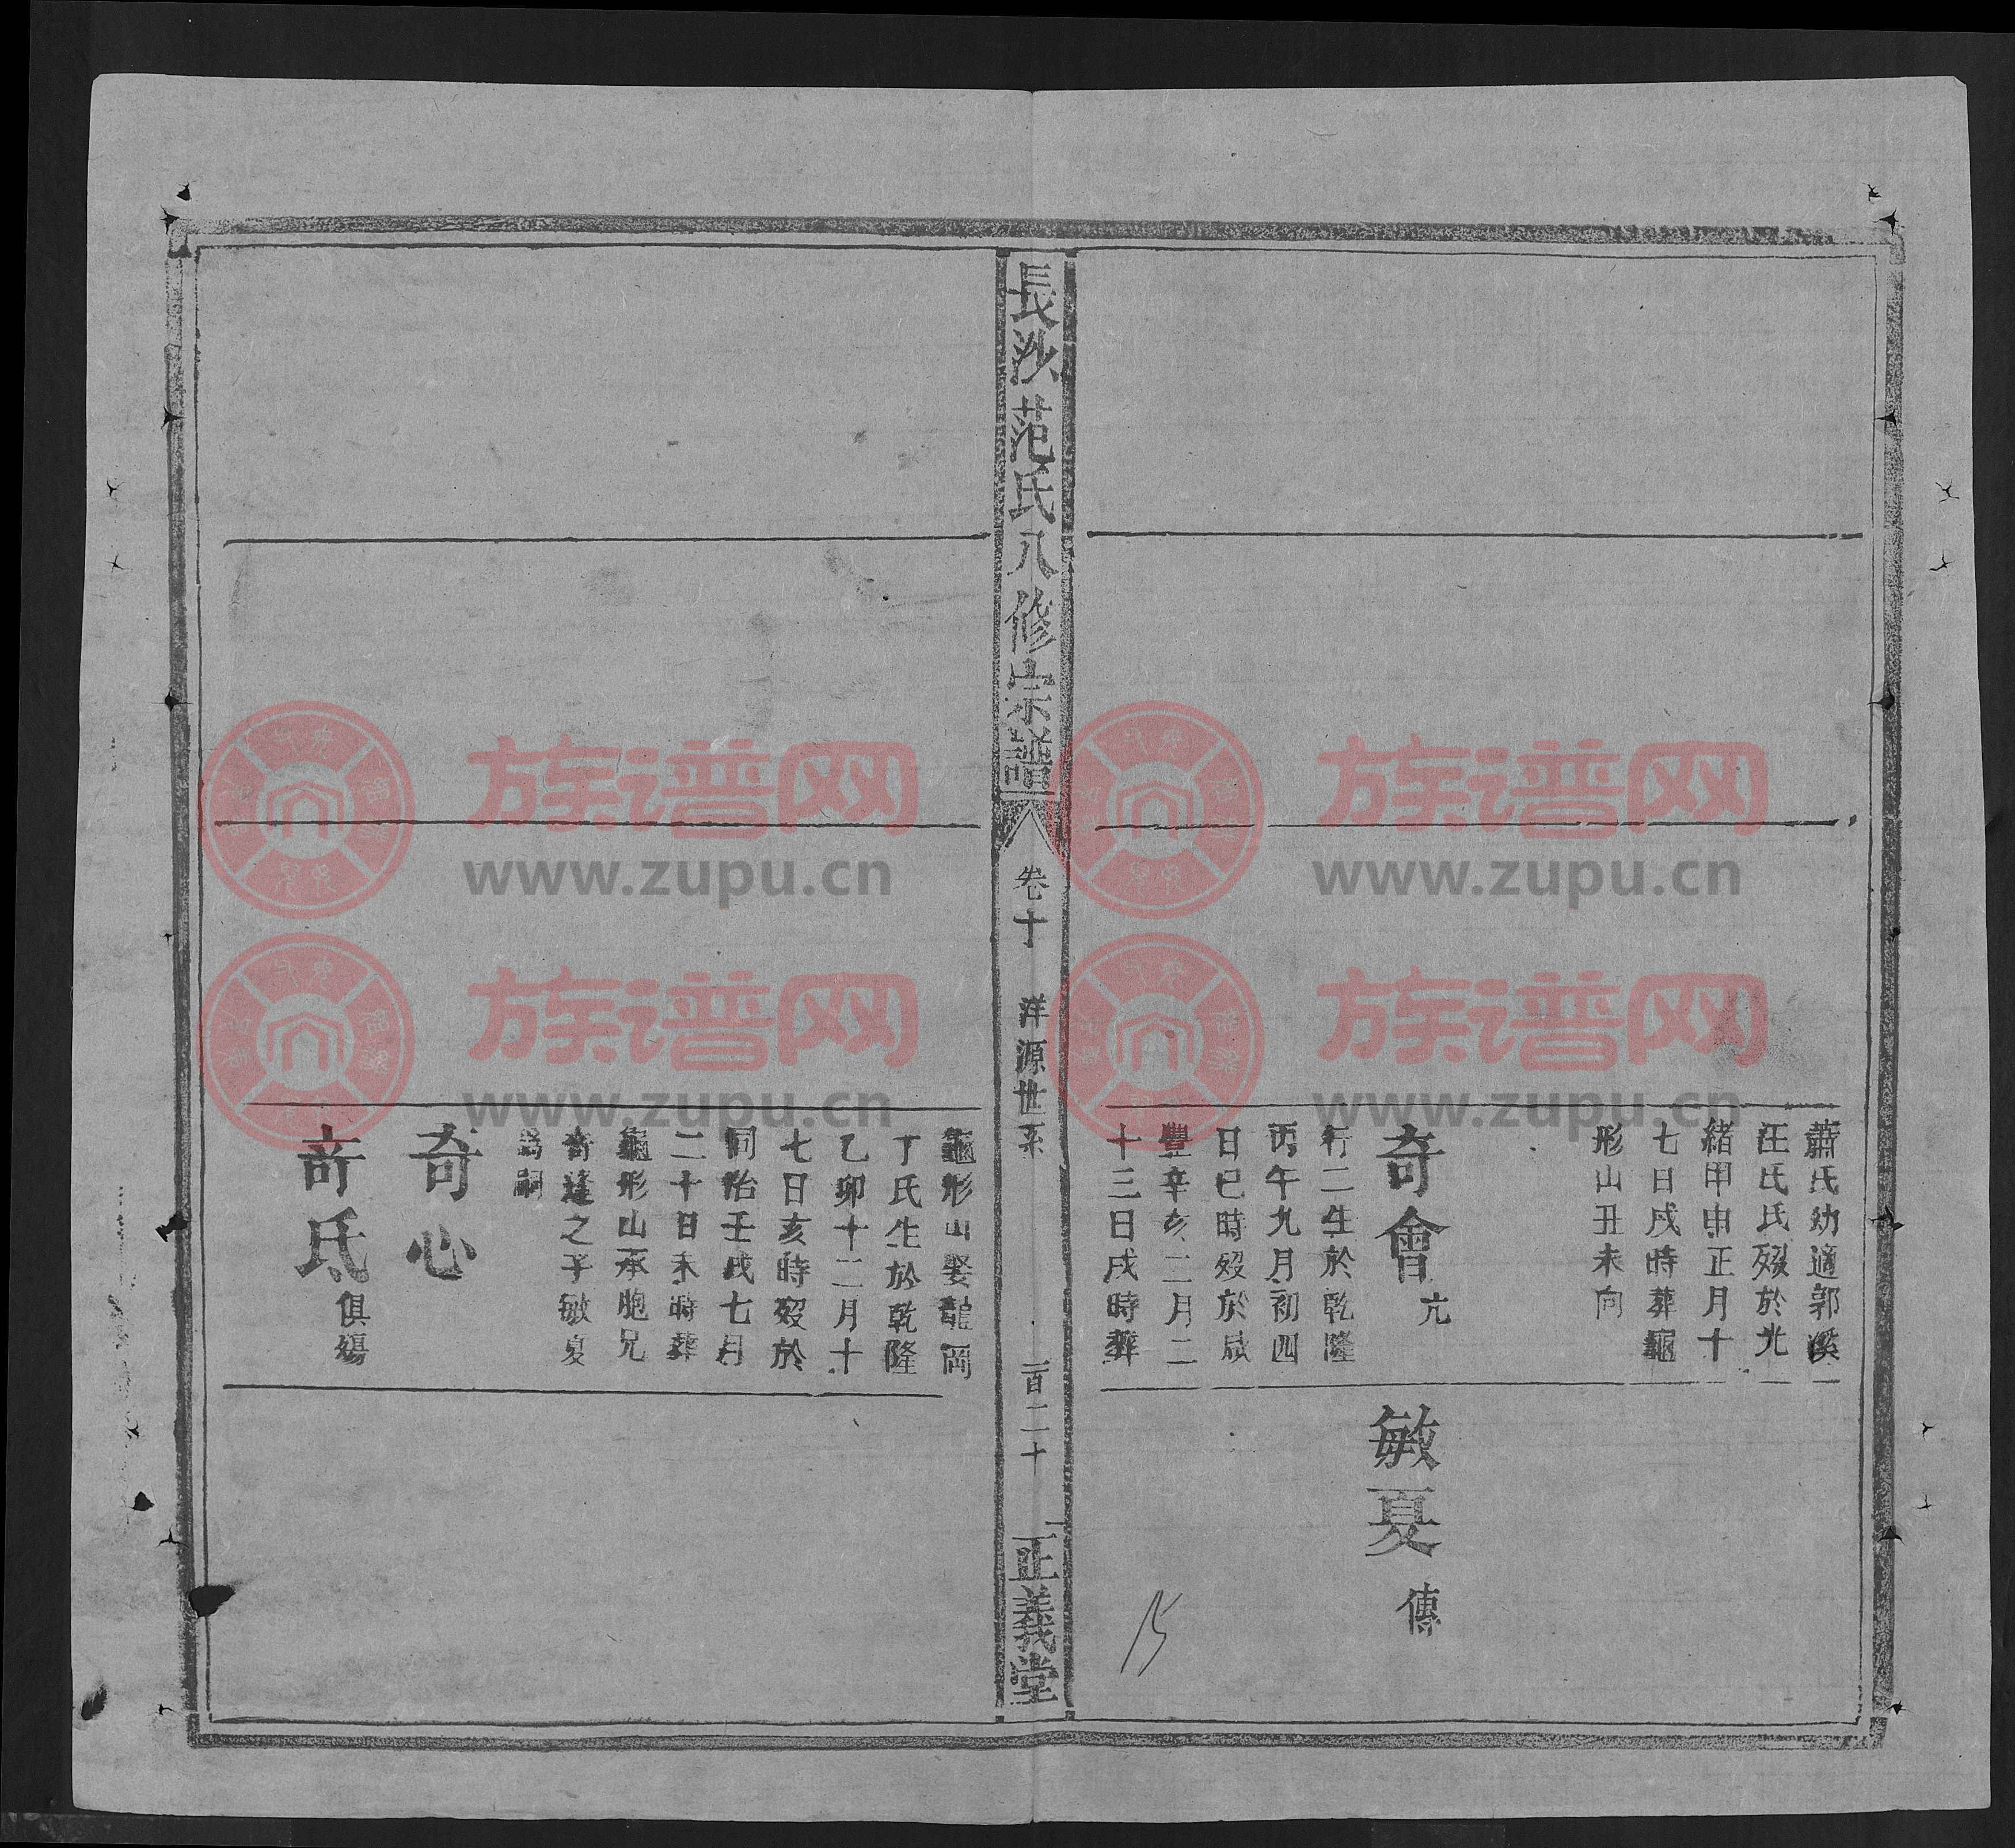 蕭氏幼適郭溪
汪氏氏歿於光
緒甲申正月十
七日戌時葬龜
形山丑未向
奇會 亢
行二生於乾隆
丙午九月初四
日巳時歿於咸
豐辛亥二月二
十三日戌時葬
敏夏 傳
15
長沙范氏八修宗譜
卷十 洋源世系
一百二十
正義堂
龜形山娶龍岡
丁氏生於乾隆
乙卯十二月十
七日亥時歿於
同治壬戌七月
二十日未時葬
龜形山承胞兄
奇逢之子敏夏
為嗣
奇心
奇氏 俱殤
族谱网
www.zupu.cn
族谱网
www.zupu.cn
族谱网
www.zupu.cn
族谱网
www.zupu.cn